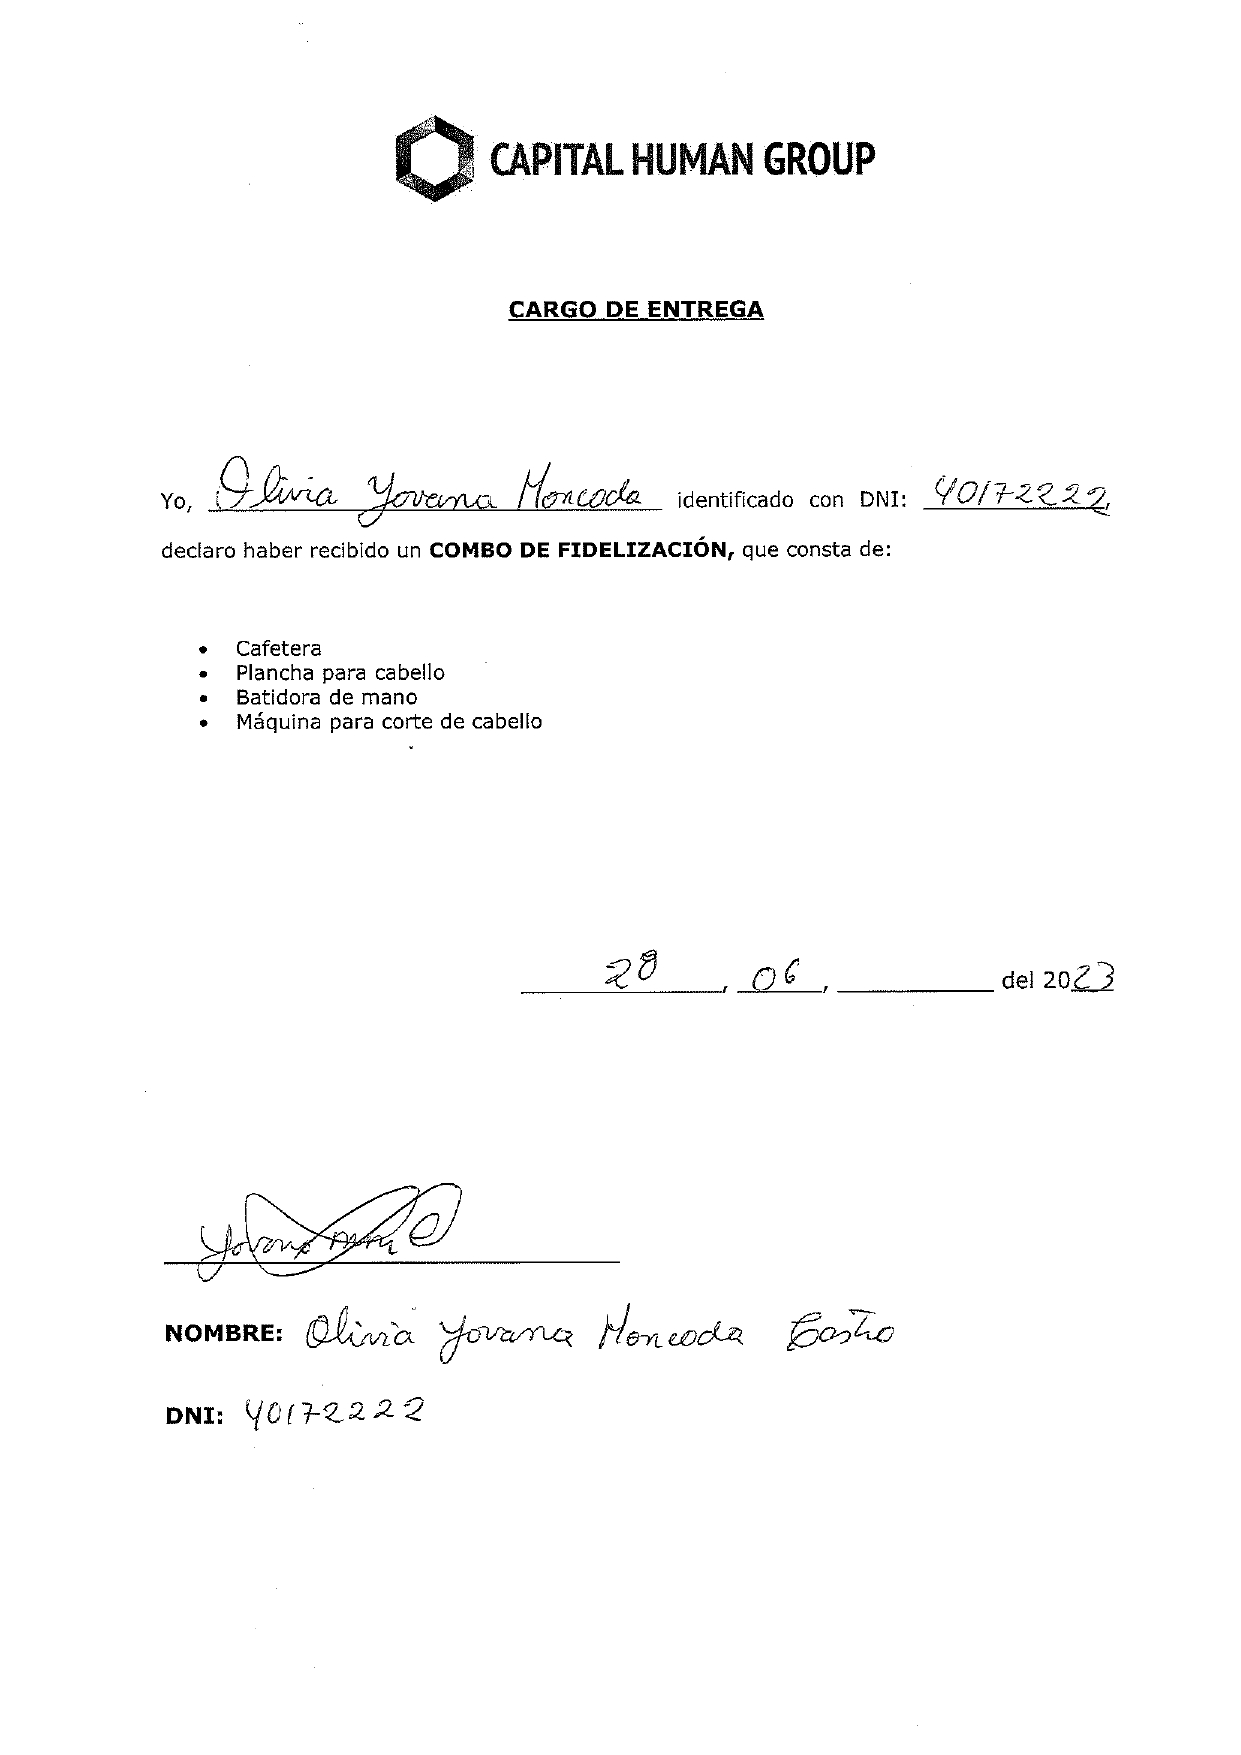 CAPITAL HUMAN GROUP
CARGO DE ENTREGA
Yo, Olivia Yovana Moncada identificado con DNI: 40172222,
declaro haber recibido un COMBO DE FIDELIZACIÓN, que consta de:
• Cafetera
• Plancha para cabello
• Batidora de mano
• Máquina para corte de cabello
28, 06, del 2023
NOMBRE: Olivia Yovana Moncada Castro
DNI: 40172222